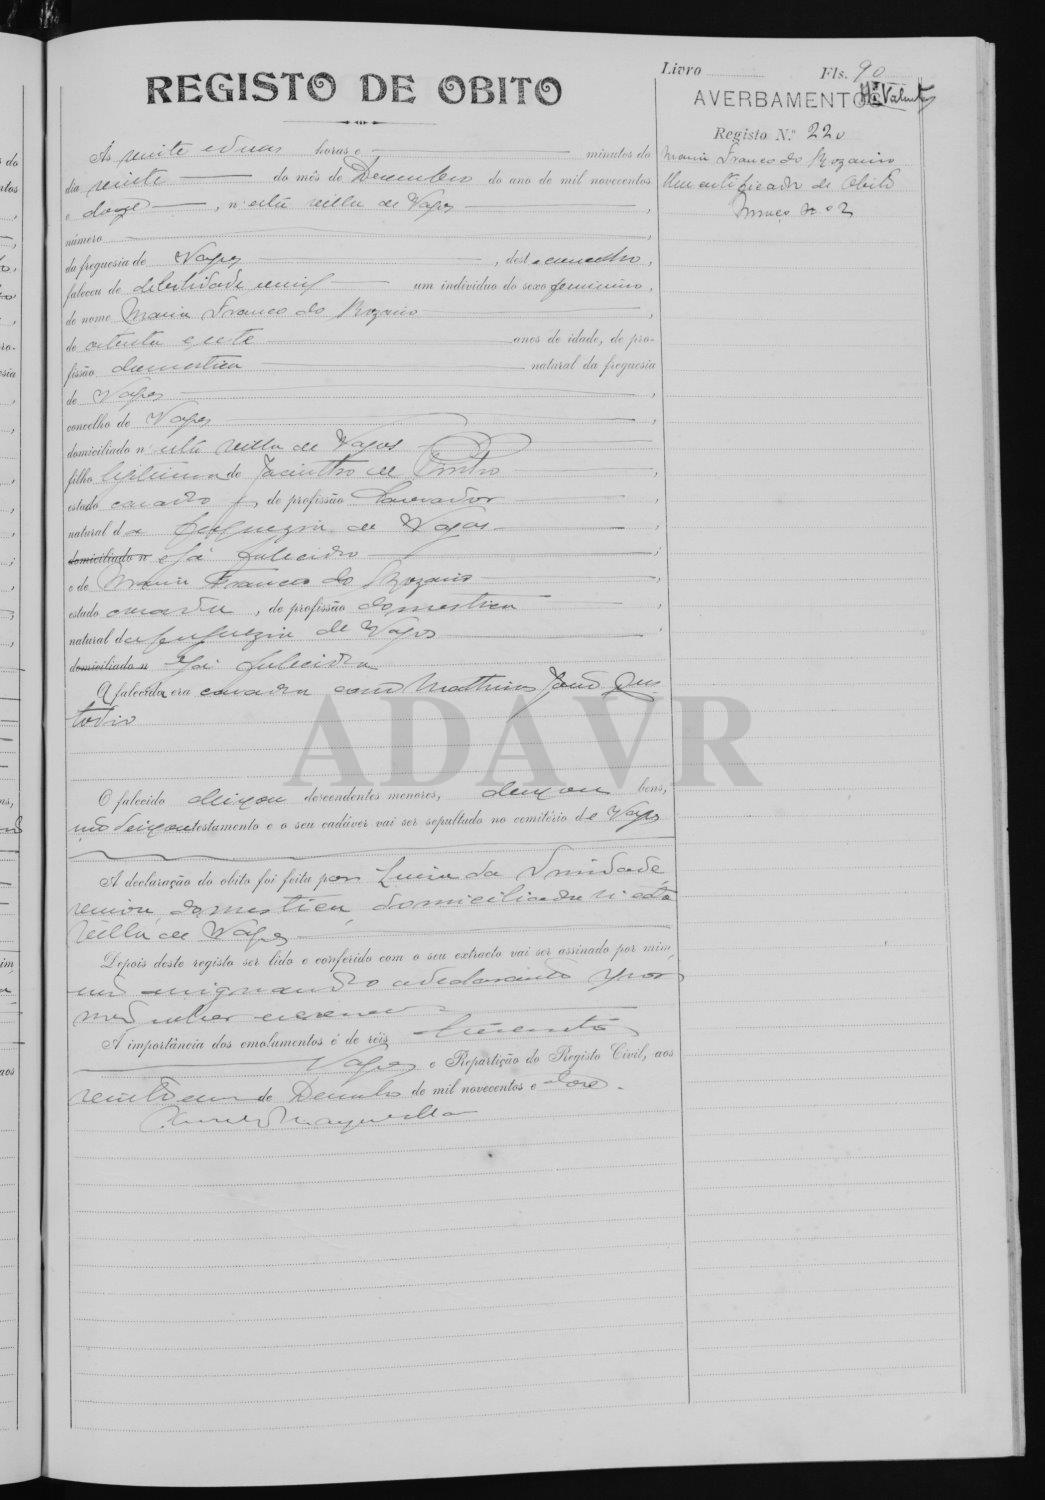 Livro Fls. 90
REGISTO DE OBITO
AVERBAMENTO
Registo N.º 220
Ás vinte e duas horas e minutos do
Maria Franco do Rozario
dia vinte do mês de Dezembro do ano de mil novecentos
Um certificado de Obito
e doze, n'esta villa de Vagos,
Maço nº 2
número,
da freguesia de Vagos, deste concelho,
faleceu de debilidade senil um individuo do sexo femenino,
de nome Maria Franco do Rozario,
de oitenta e sete anos de idade, de pro-
fissão domestica natural da freguesia
de Vagos,
concelho de Vagos,
domiciliado n'esta villa de Vagos
filho legitima de Jacintho de,
estado casado, de profissão Lavrador,
natural da freguezia de Vagos,
domiciliado n e já falecido;
e de Maria Franco do Rozario,
estado casada, de profissão domestica,
natural da freguezia de Vagos,
domiciliado n já falecida
A falecida era casada com Mathias João Cus
todio
ADAVR
O falecido deixou descendentes menores, deixou bens,
não deixou testamento e o seu cadáver vai ser sepultado no cemitério de Vagos
A declaração do obito foi feita por Luiza da Trindade,
domestica, domiciliada n'esta
villa de Vagos
Depois deste registo ser lido e conferido com o seu extracto vai ser assinado por mim,
não assignando a declarante por
não saber escrever
A importância dos emolumentos é de réis
Vagos e Repartição do Registo Civil, aos
de Dezembro de mil novecentos e doze.